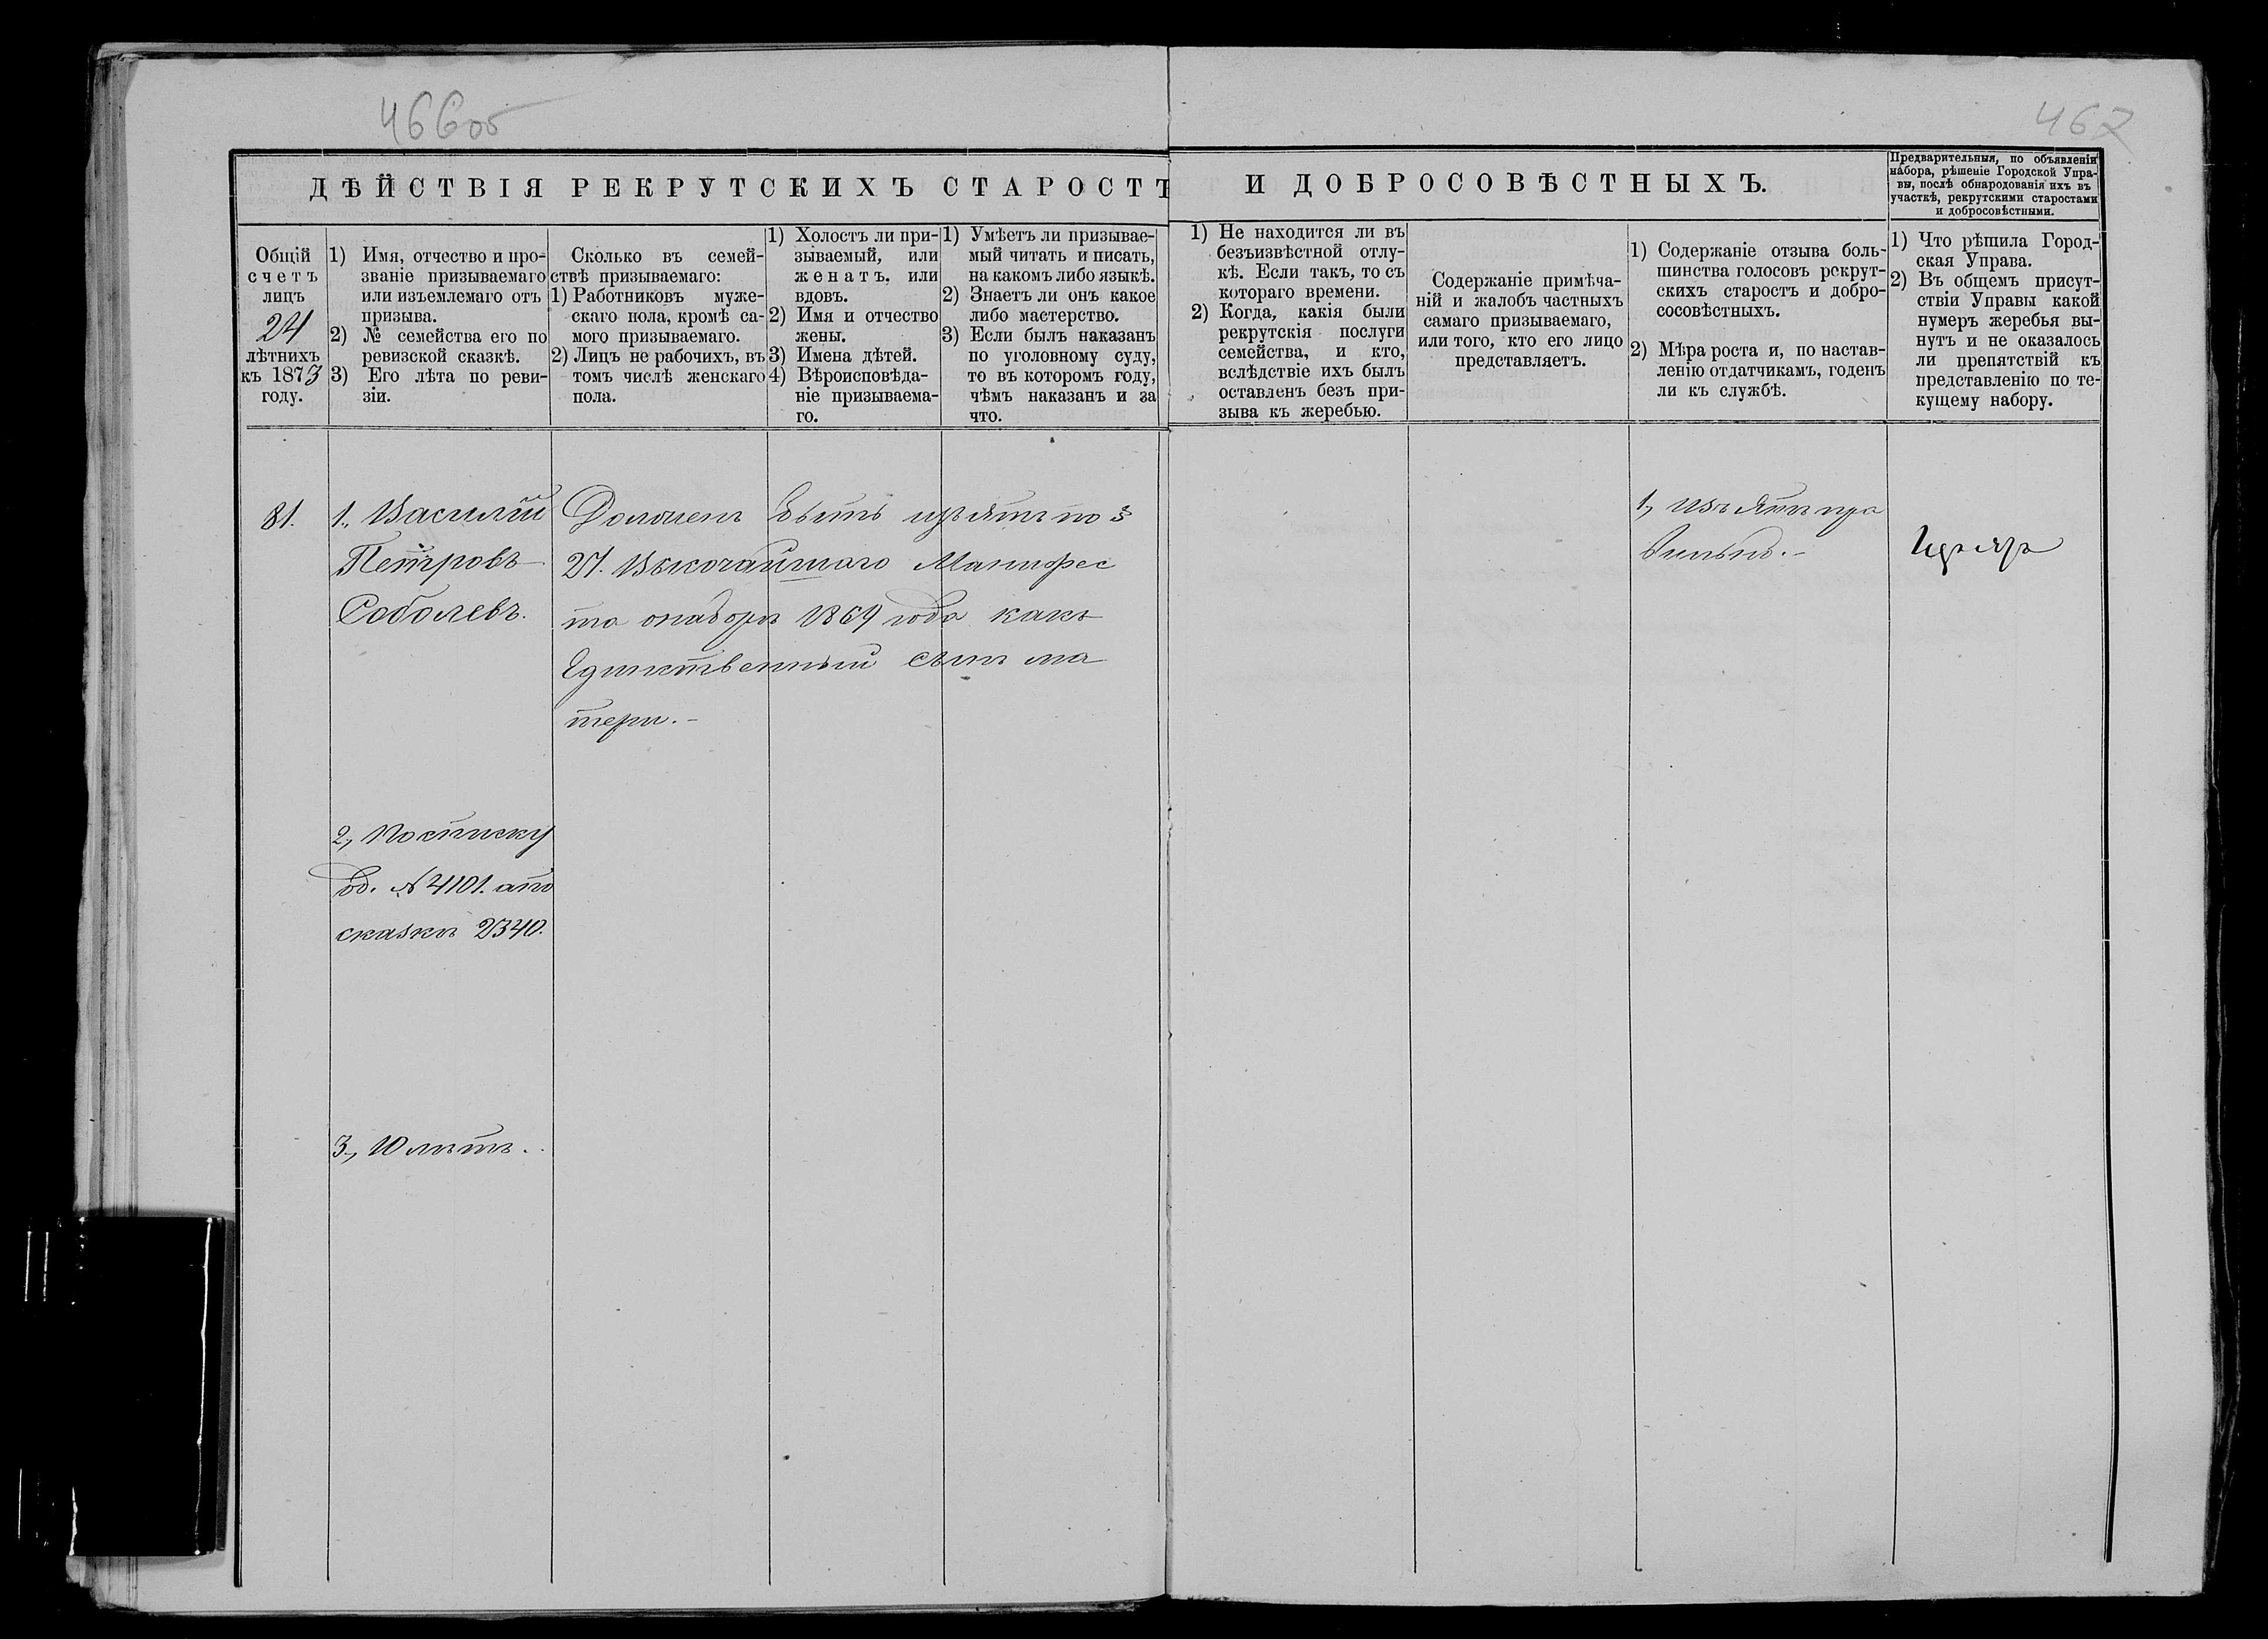 466об
467
ДѢЙСТВІЯ РЕКРУТСКИХЪ СТАРОСТЪ И ДОБРОСОВѢСТНЫХЪ.
Предварительныя, по объявленіи
набора, рѣшеніе Городской Упра-
вы, послѣ обнародованія ихъ въ
участкѣ, рекрутскими старостами
и добросовѣстными.
Общій
счетъ
лицъ
24
лѣтнихъ
къ 1873
году.
1) Имя, отчество и про-
званіе призываемаго
или изъемлемаго отъ
призыва.
2) № семейства его по
ревизской сказкѣ.
3) Его лѣта по реви-
зіи.
Сколько въ семей-
ствѣ призываемаго:
1) Работниковъ муже-
скаго пола, кромѣ са-
мого призываемаго.
2) Лицъ не рабочихъ, въ
томъ числѣ женскаго
пола.
1) Холостъ ли при-
зываемый, или
женатъ, или
вдовъ.
2) Имя и отчество
жены.
3) Имена дѣтей.
4) Вѣроисповѣда-
ніе призываема-
го.
1) Умѣетъ ли призывае-
мый читать и писать,
на какомъ либо языкѣ.
2) Знаетъ ли онъ какое
либо мастерство.
3) Если былъ наказанъ
по уголовному суду,
то въ которомъ году,
чѣмъ наказанъ и за
что.
1) Не находится ли въ
безъизвѣстной отлу-
кѣ. Если такъ, то съ
котораго времени.
2) Когда, какія были
рекрутскія послуги
семейства, и кто,
вслѣдствіе ихъ былъ
оставленъ безъ при-
зыва къ жеребью.
Содержаніе примѣча-
ній и жалобъ частныхъ
самаго призываемаго,
или того, кто его лицо
представляетъ.
1) Содержаніе отзыва боль-
шинства голосовъ рекрут-
скихъ старостъ и добро-
сосовѣстныхъ.
2) Мѣра роста и, по настав-
ленію отдатчикамъ, годенъ
ли къ службѣ.
1) Что рѣшила Город-
ская Управа.
2) Въ общемъ присут-
ствіи Управы какой
нумеръ жеребья вы-
нутъ и не оказалось
ли препятствій къ
представленію по те-
кущему набору.
81.
1., Василій
Петровъ
Соболевъ.
2, По списку
об. № 4101. а по
сказкѣ 2340.
3., 10 лѣтъ.
Долженъ быть изъятъ по §
27. Высочайшаго Манифес
та о наборѣ 1869 года какъ
Единственный сынъ ма
тери.-
1, Изъятъ пра
вильно.-
Изъятъ